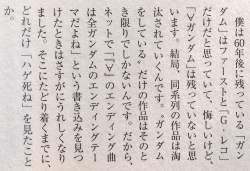 僕は60年後に残っている『ガン
ダム』はファーストと『Gレコ』
だけだと思っていて、悔しいけど、
『∀ガンダム』は残っていないと思
います。結局、同系列の作品は淘
汰されていくんです。“ガンダム
をしている”だけの作品はそのと
き限りでしかないんです。だから、
ネットで「『∀』のエンディング曲
は全ガンダムのエンディングテー
マだよね」という書き込みを見つ
けたときはさすがにうれしくなり
ました。そこにたどり着くまでに、
どれだけ「ハゲ死ね」を見たこと
か。